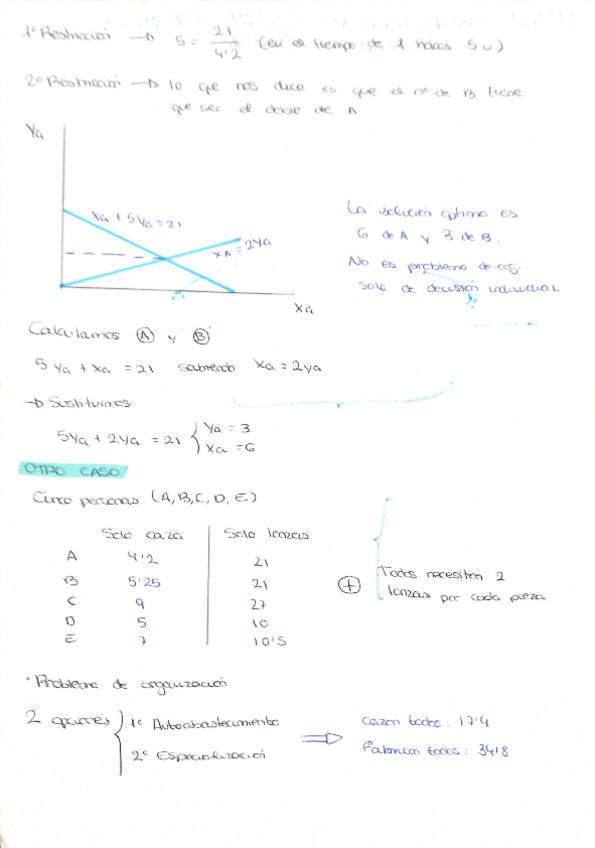 1º Restricción → 5 = 21/4'2 (en el tiempo de 1 haces 5u)
2º Restricción → lo que nos dice es que el nº de B tiene
que ser el doble de A
Ya
Xa + 5Ya = 21
XA = 2Ya
Xa
La solución óptima es
6 de A y 3 de B.
No es problema de og.
Solo de decisión individual.
Calculamos A y B
5Ya + Xa = 21 sabiendo Xa = 2ya
→ Sustituimos
5Ya + 2Ya = 21 { Ya = 3
Xa = 6
OTRO CASO
Cinco personas (A, B, C, D, E)
Solo caza Solo lanzas
A 4'2 21
B 5'25 21
C 9 27
D 5 10
E 7 10'5
+ Todos necesitan 2
lanzas por cada pieza
· Problema de organización
2 opciones } 1º Autoabastecimiento
2º Especialización
⇒ Cazan todos: 17'4
Fabrican todos: 34'8